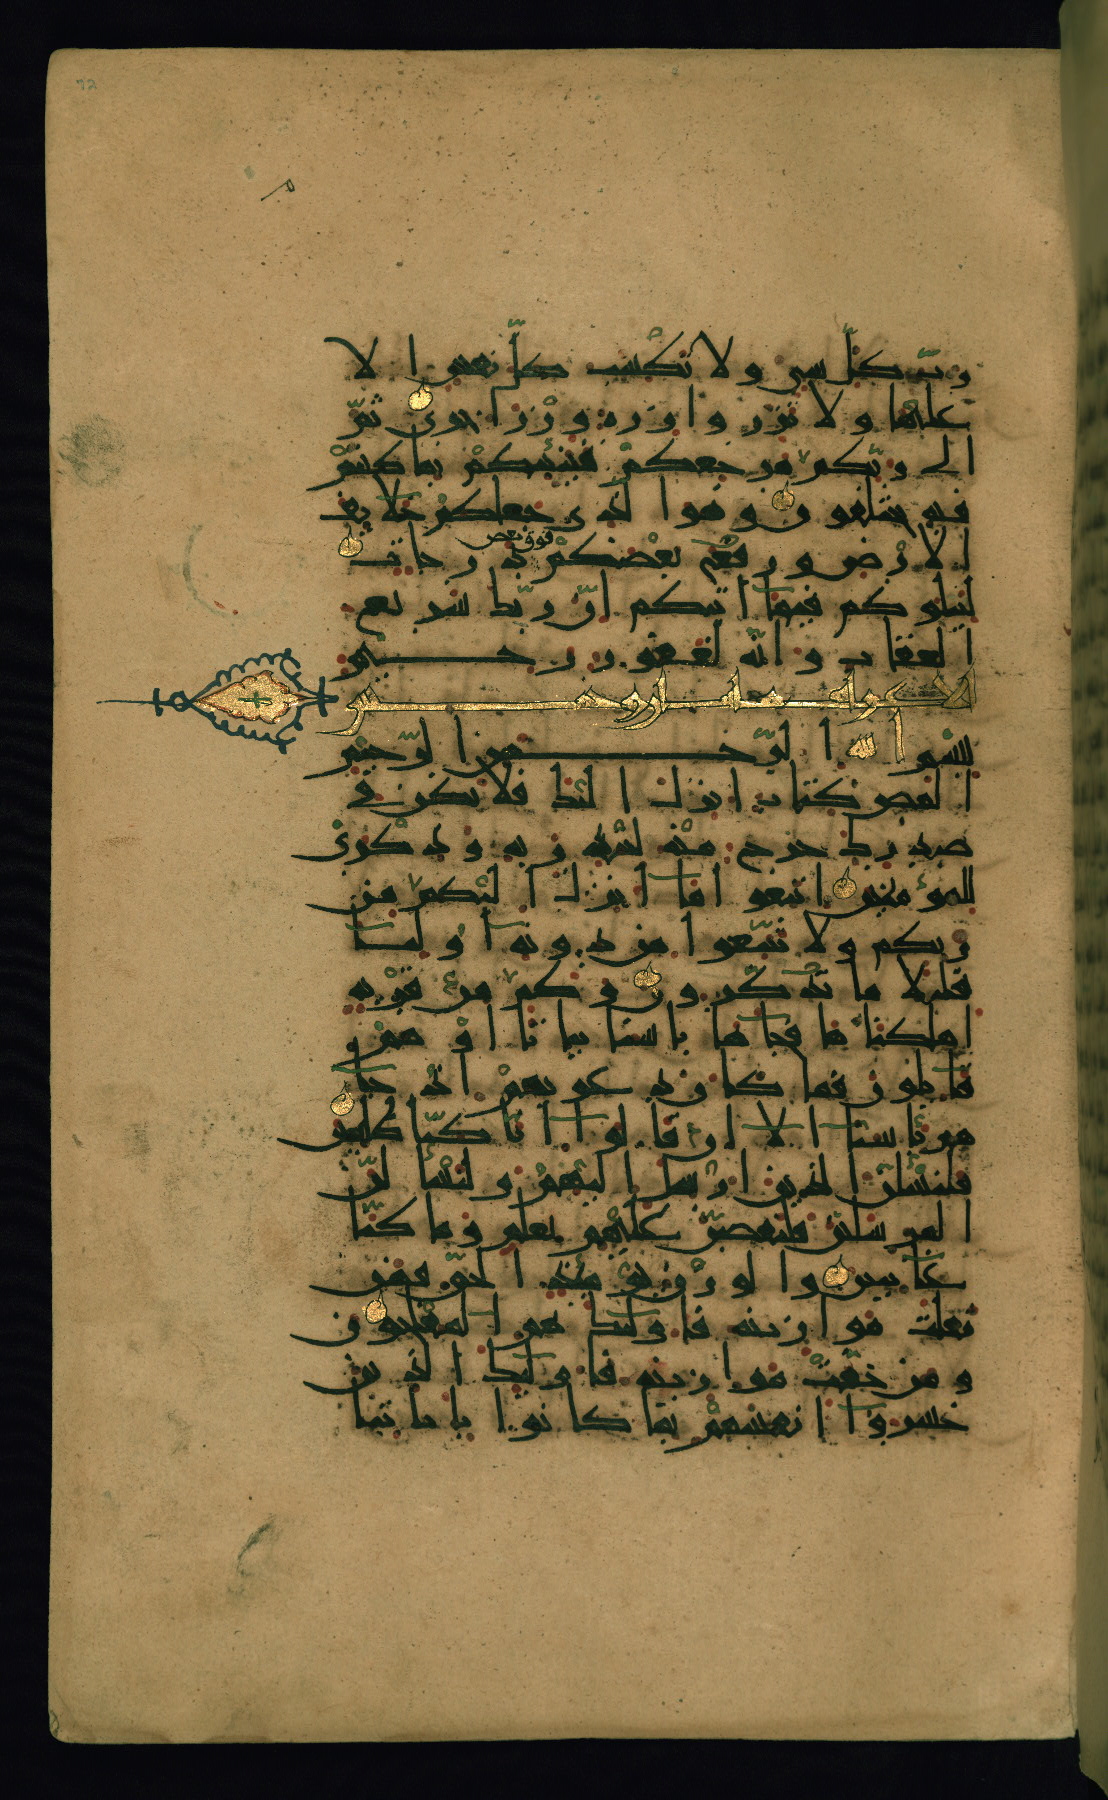 رب كل شى ولا تكسب كل نفس ا لا
عليها ولا تزر وازرة وزر اخرى ثم
الى ربكم مرجعكم فينبئكم بما كنتم
فيه تختلفون وهو الذى جعلكم خلائف
الارض ورفع بعضكم درجات
فوق بعض
ليبلوكم فيما اتيكم ان ربك سريع
العقاب وانه لغفور رحيم
بسم الله الرحمن الرحيم
المص كتاب انزل اليك فلا يكن فى
صدرك حرج منه لتنذر به وذكرى
للمؤمنين اتبعوا ما انزل اليكم من
ربكم ولا تتبعوا من دونه اوليا
قليلا ما تذكرون وكم من قرية
اهلكناها فجاها باسنا بياتا او هم
قايلون فما كان دعويهم اذ جا
هم باسنا الا ان قالوا انا كنا ظلمين
فلنسئلن الذين ارسل اليهم ولنسئلن
المرسلين فلنقصن عليهم بعلم وما كنا
غايبين والوزن يومئذ الحق فمن
ثقلت موازينه فاوليك هم المفلحون
ومن خفت موازينه فاوليك الذين
خسروا انفسهم بما كانوا باياتنا